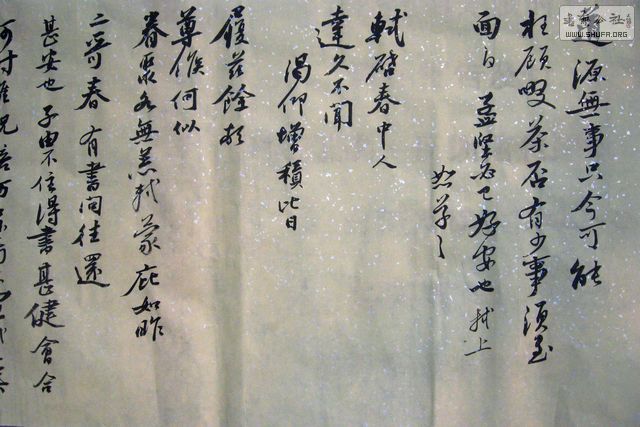 道源無事只今可能
枉顧啜茶否有少事須至
面白 孟堅必已好安也 軾上
恕草々
軾啓春中人
達久不聞
渴仰增積比日
履茲餘寒
尊候何似
眷聚各無恙軾蒙庇如昨
二哥春 有書問往還
甚安也 子由不住得書甚健會合
何時惟兄
WWW.SHUFA.ORG